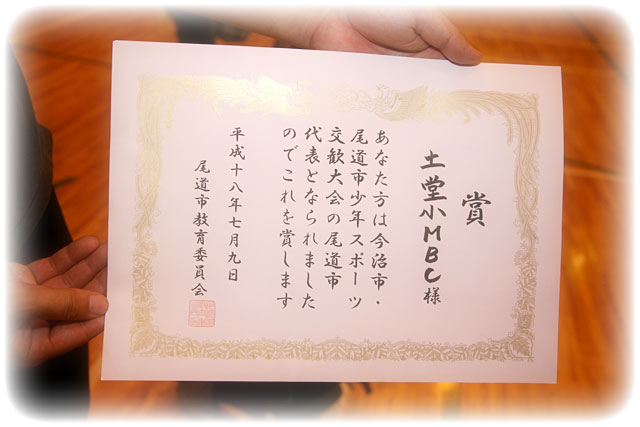 賞
土堂小MBC様
あなた方は今治市・
尾道市少年スポーツ
交歓大会の尾道市
代表となられました
のでこれを賞します
平成十八年七月九日
尾道市教育委員会